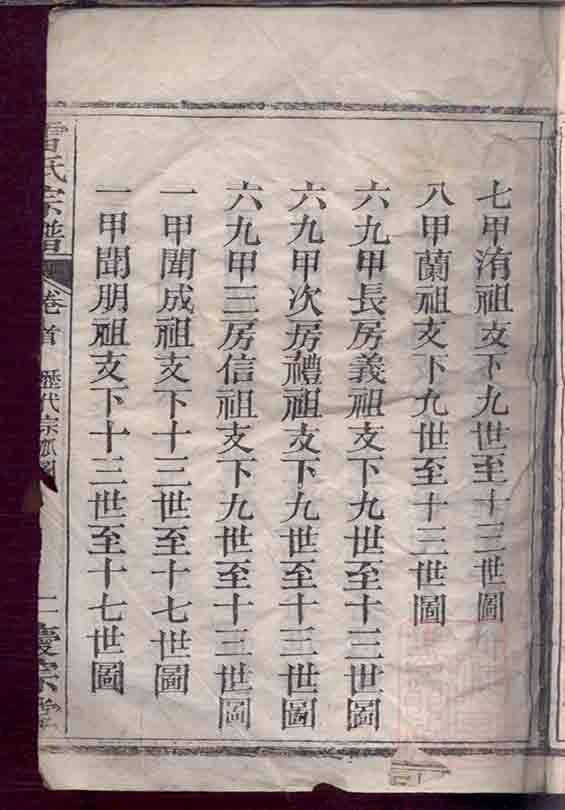 七甲洧祖支下九世至十三世圖
八甲蘭祖支下九世至十三世圖
六九甲長房義祖支下九世至十三世圖
六九甲次房禮祖支下九世至十三世圖
六九甲三房信祖支下九世至十三世圖
一甲聞成祖支下十三世至十七世圖
一甲聞朋祖支下十三世至十七世圖
氏宗譜 卷首 歷代宗派圖 一 慶宗堂